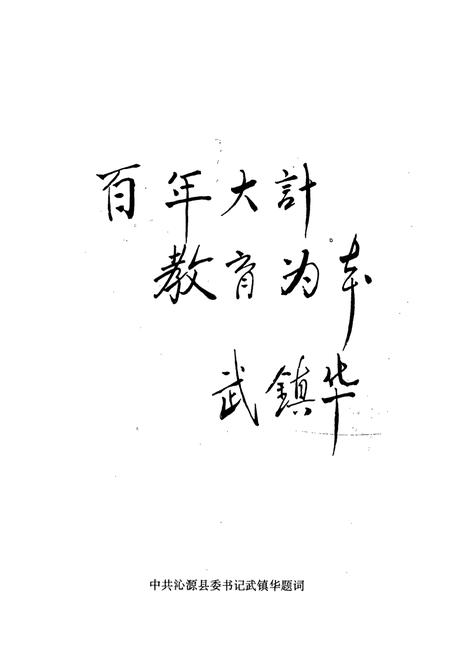 百年大計
教育为本
武鎮华
中共沁源县委书记武镇华题词